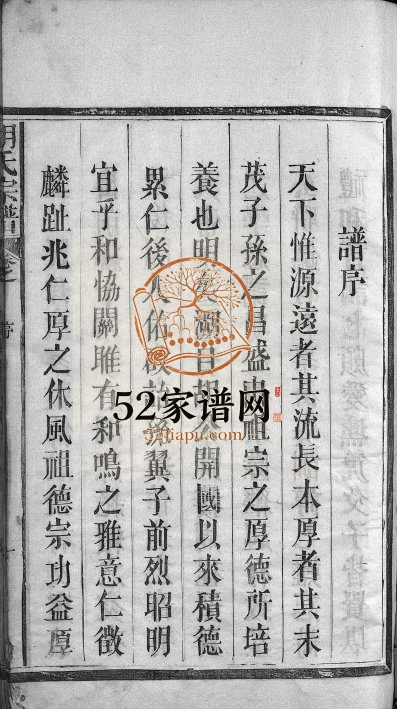 譜序
天下惟源遠者其流長本厚者其末
茂子孫之昌盛由祖宗之厚德所培
養也明 湖 胡公開國以來積德
累仁後人佑啟 孫翼子前烈昭明
宜乎和協關雎有和鳴之雅意仁徵
麟趾兆仁厚之休風祖德宗功益厚
胡氏宗譜 卷之一 序
52家谱网
52jiapu.com